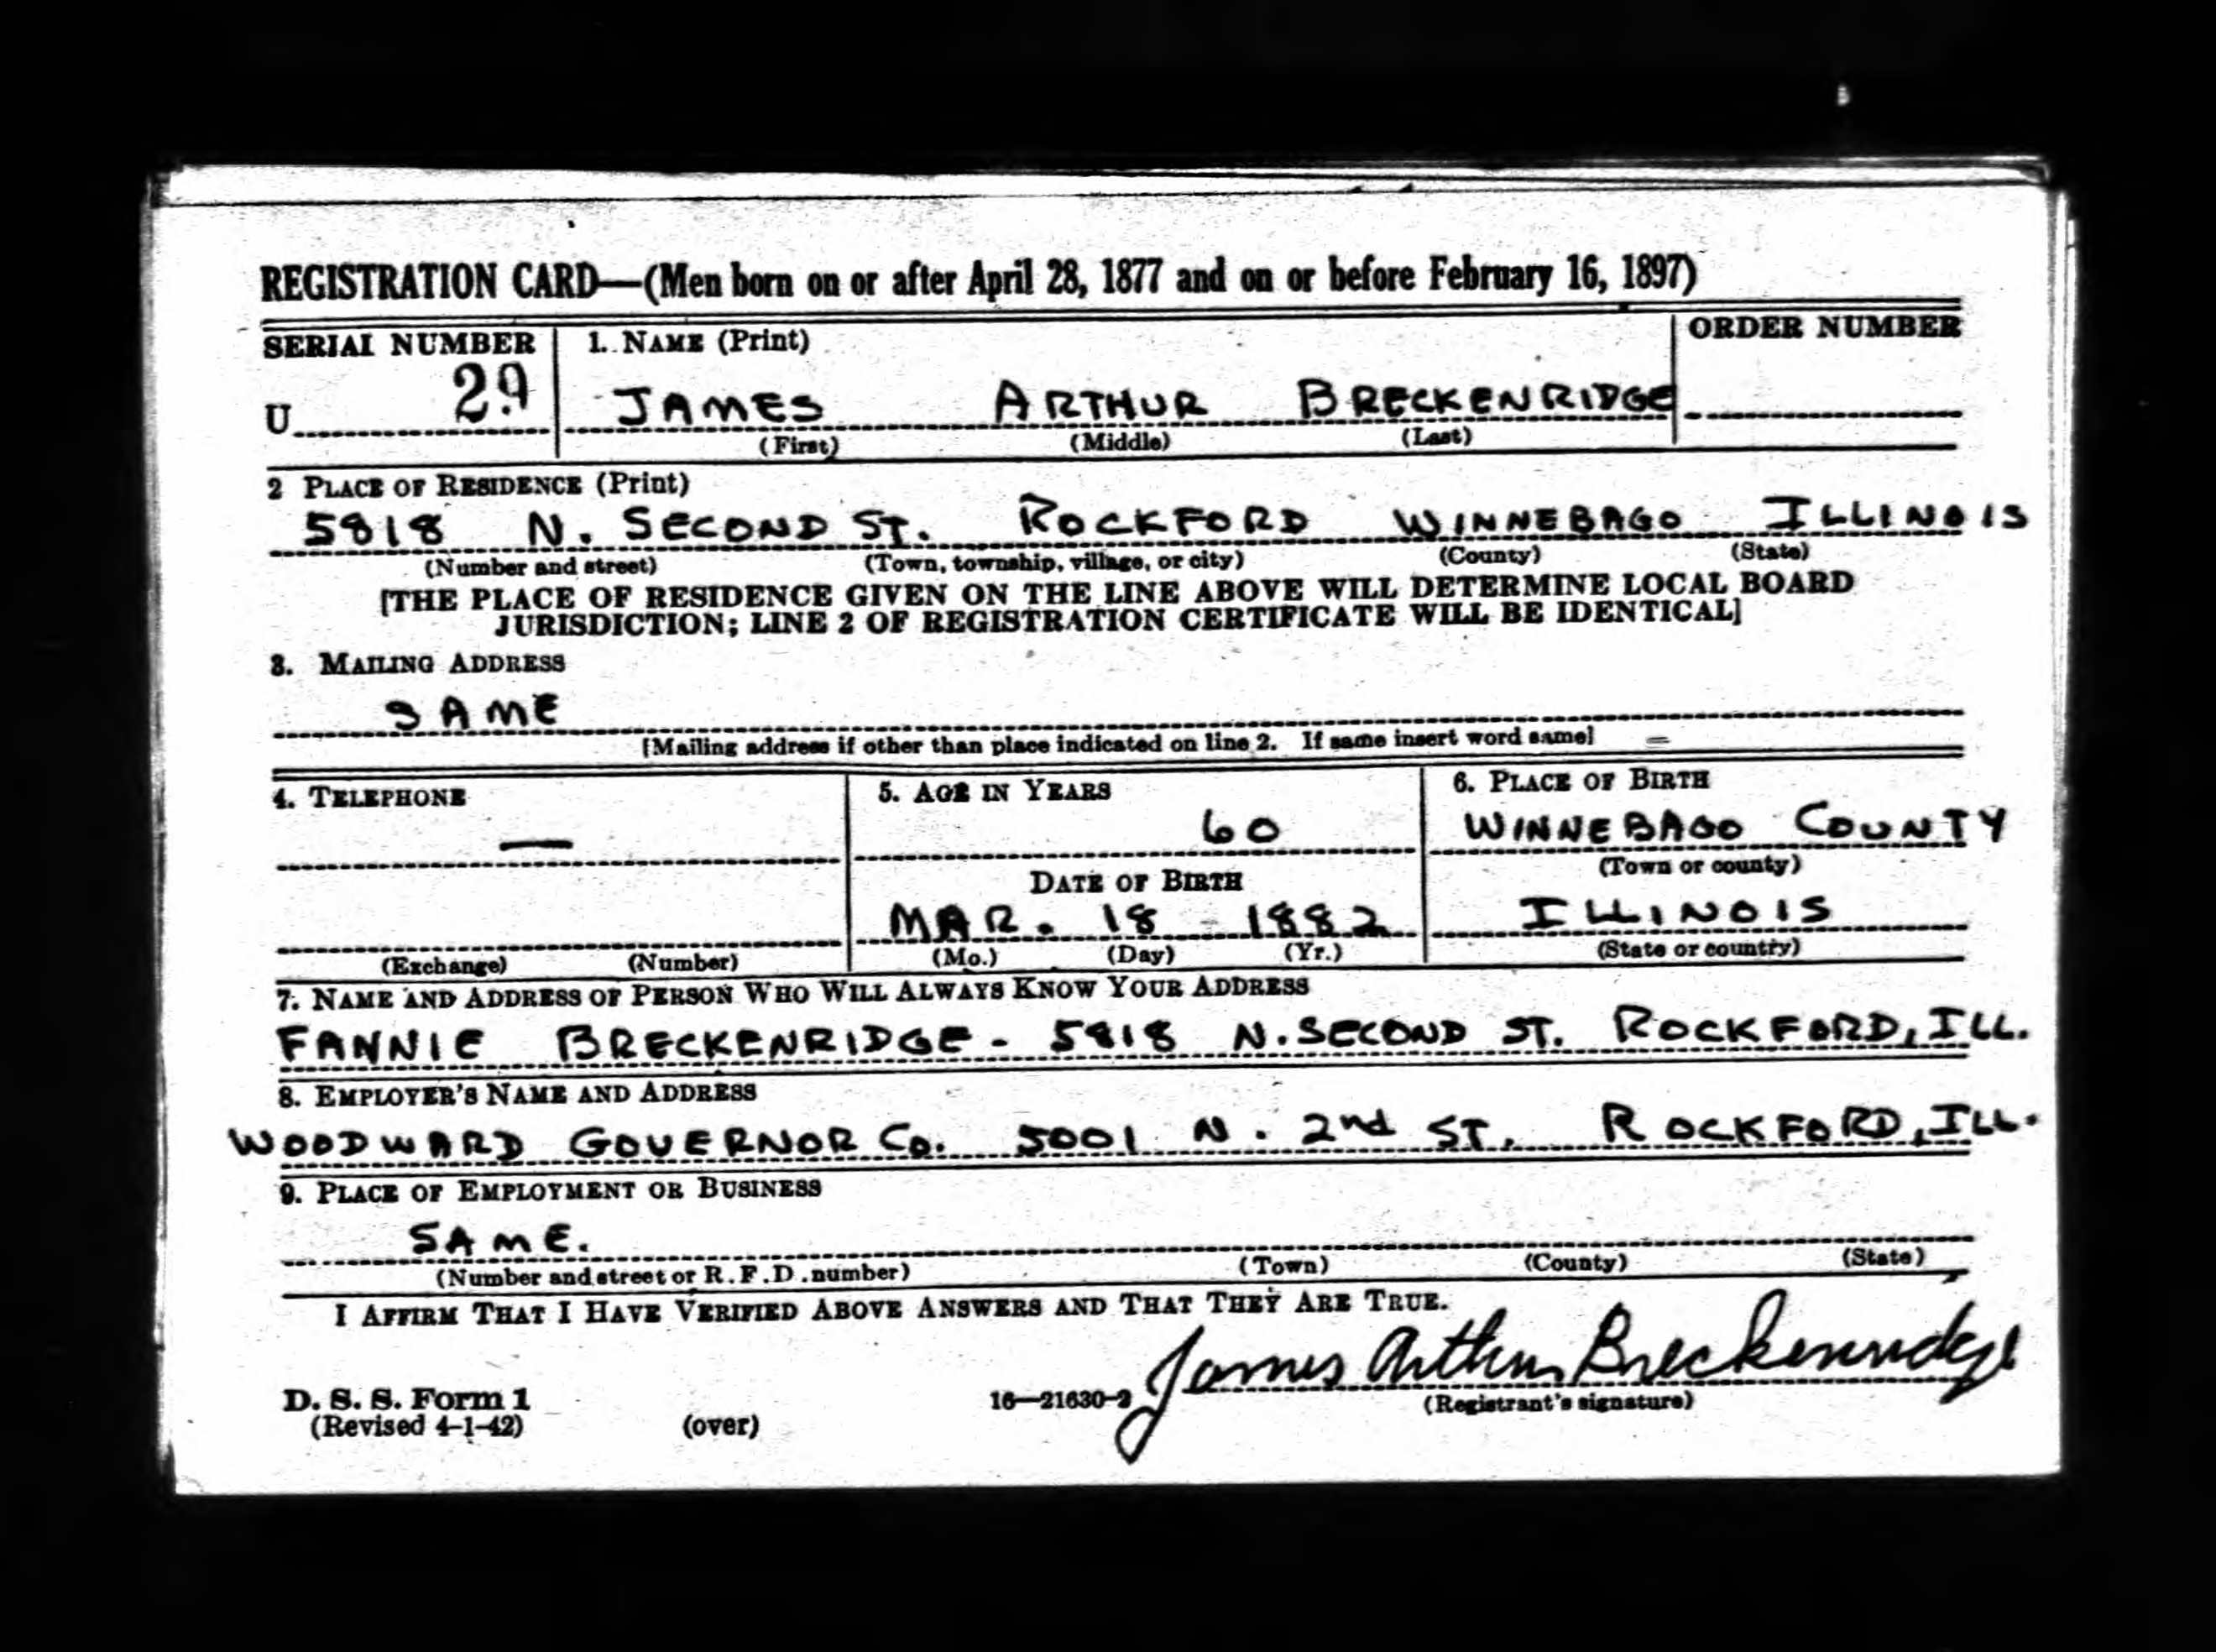 REGISTRATION CARD—(Men born on or after April 28, 1877 and on or before February 16, 1897)
SERIAL NUMBER 1. NAME (Print) ORDER NUMBER
U 29 JAMES ARTHUR BRECKENRIDGE
(First) (Middle) (Last)
2 PLACE OF RESIDENCE (Print)
5818 N. SECOND ST. ROCKFORD WINNEBAGO ILLINOIS
(Number and street) (Town, township, village, or city) (County) (State)
[THE PLACE OF RESIDENCE GIVEN ON THE LINE ABOVE WILL DETERMINE LOCAL BOARD
JURISDICTION; LINE 2 OF REGISTRATION CERTIFICATE WILL BE IDENTICAL]
3. MAILING ADDRESS
SAME
[Mailing address if other than place indicated on line 2. If same insert word same]
4. TELEPHONE 5. AGE IN YEARS 6. PLACE OF BIRTH
— 60 WINNEBAGO COUNTY
DATE OF BIRTH (Town or county)
MAR. 18 1882 ILLINOIS
(Exchange) (Number) (Mo.) (Day) (Yr.) (State or country)
7. NAME AND ADDRESS OF PERSON WHO WILL ALWAYS KNOW YOUR ADDRESS
FANNIE BRECKENRIDGE - 5818 N. SECOND ST. ROCKFORD, ILL.
8. EMPLOYER'S NAME AND ADDRESS
WOODWARD GOVERNOR CO. 5001 N. 2nd ST. ROCKFORD, ILL.
9. PLACE OF EMPLOYMENT OR BUSINESS
SAME.
(Number and street or R.F.D. number) (Town) (County) (State)
I AFFIRM THAT I HAVE VERIFIED ABOVE ANSWERS AND THAT THEY ARE TRUE.
James Arthur Breckenridge
D. S. S. Form 1 16—21630-2 (Registrant's signature)
(Revised 4-1-42) (over)